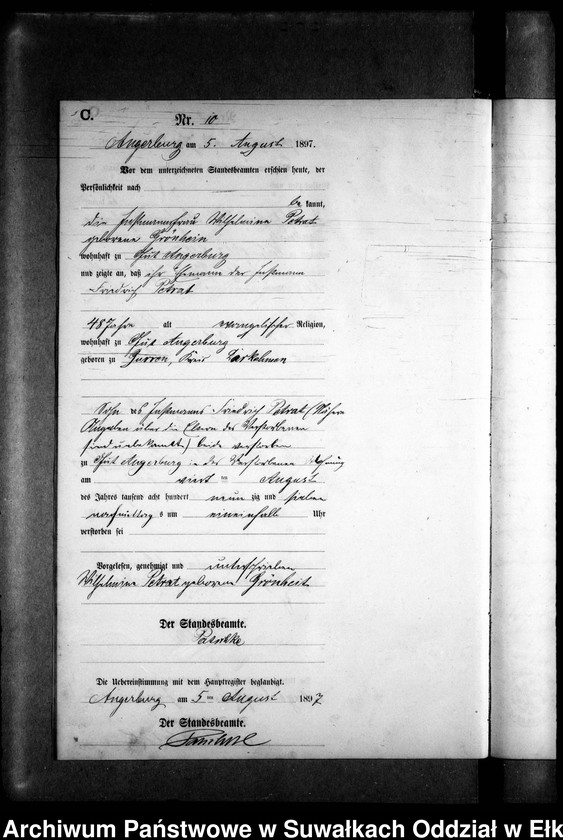 C.
Nr. 10
Angerburg am 5. August 1897.
Vor dem unterzeichneten Standesbeamten erschien heute, der
Persönlichkeit nach
be kannt,
die Instmannsfrau Wilhelmine Petrat
geborene Grönhein
wohnhaft zu Gut Angerburg
und zeigte an, daß ihr Ehemann der Instmann
Friedrich Petrat
48 Jahre alt evangelischer Religion,
wohnhaft zu Gut Angerburg
geboren zu Gurren, Kreis Darkehmen
Sohn des Instmanns Friedrich Petrat (Nähere
Angaben über die Eltern des Verstorbenen
sind unbekannt) beide verstorben
zu Gut Angerburg in des Verstorbenen Wohnung
am vierten August
des Jahres tausend acht hundert neun zig und sieben
nachmittags um eineinhalb Uhr
verstorben sei
Vorgelesen, genehmigt und unterschrieben
Wilhelmine Petrat geborene Grönheit
Der Standesbeamte.
Die Uebereinstimmung mit dem Hauptregister beglaubigt.
Angerburg am 5ten August 1897
Der Standesbeamte.
Archiwum Państwowe w Suwałkach Oddział w Ełk